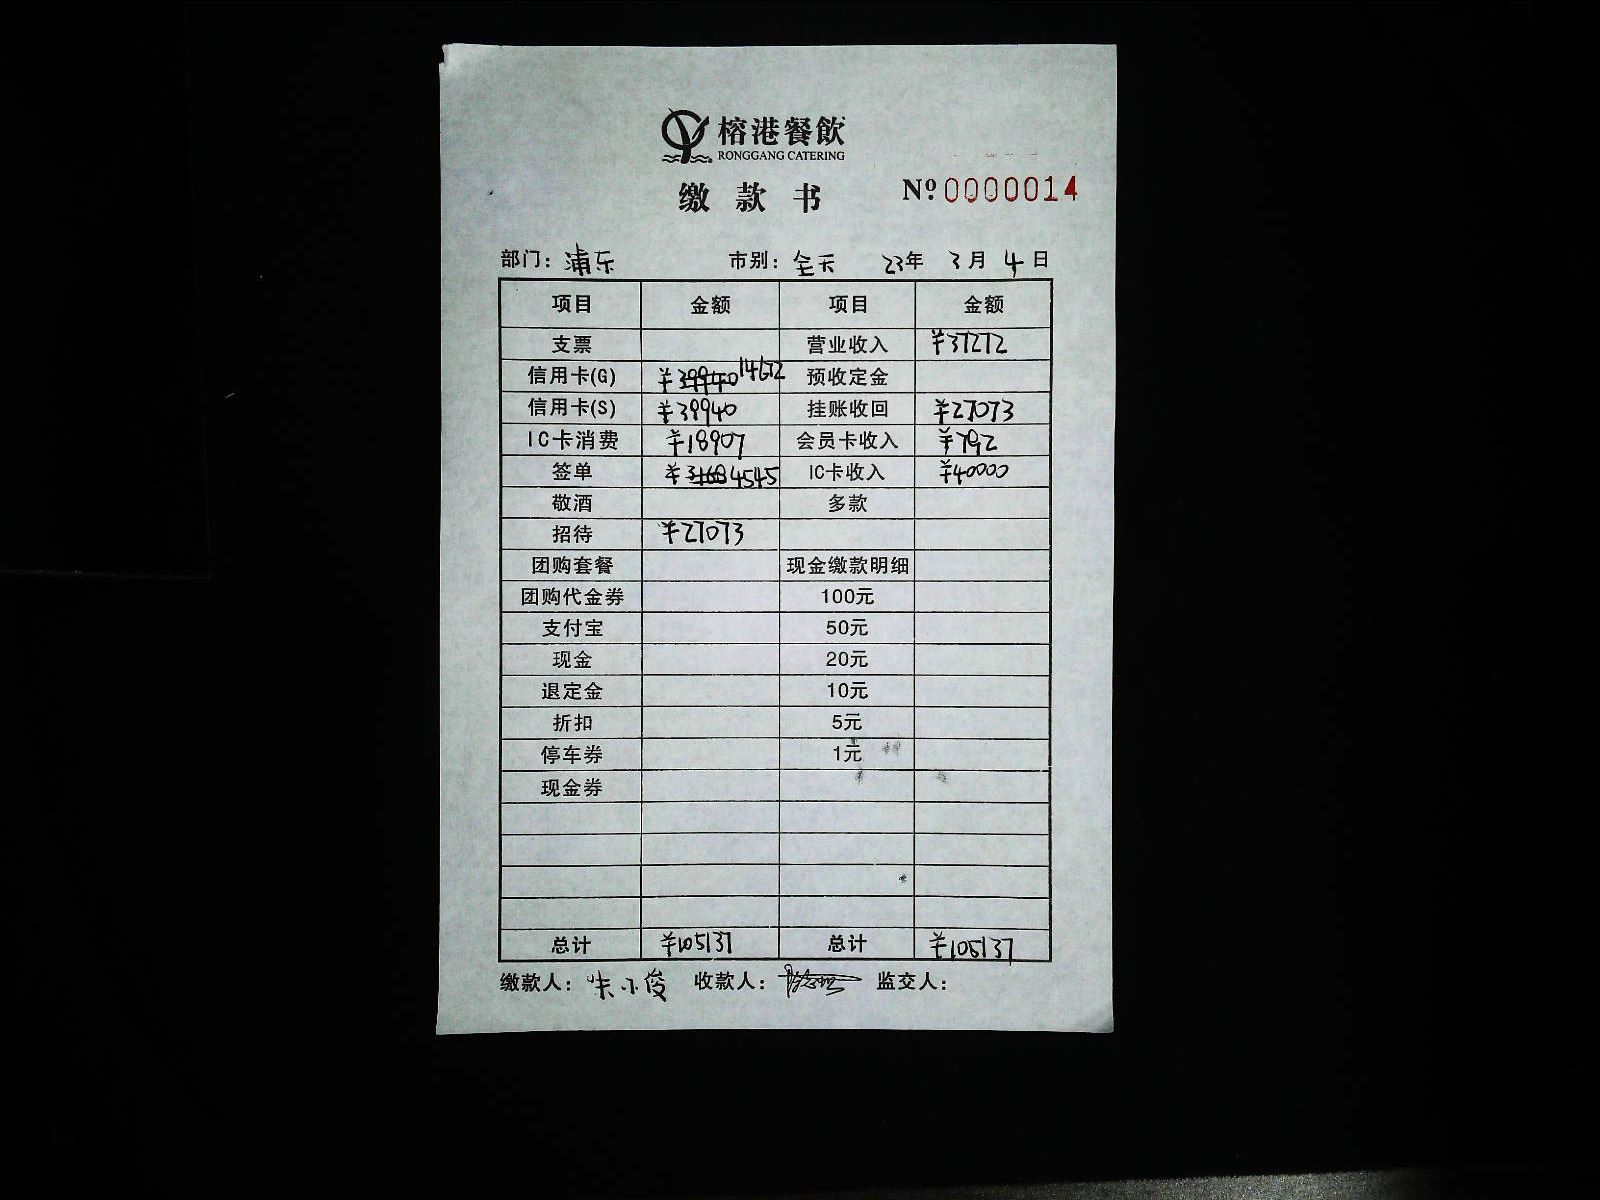 榕港餐飲
RONGGANG CATERING
缴款书 Nº 0000014
部门: 浦东 市别: 全天 23年 3月 4日
项目 金额 项目 金额
支票 营业收入 ¥37272
信用卡(G) ¥39940 14672 预收定金
信用卡(S) ¥39940 挂账收回 ¥27073
IC卡消费 ¥18907 会员卡收入 ¥792
签单 ¥ 4545 IC卡收入 ¥40000
敬酒 多款
招待 ¥27073
团购套餐 现金缴款明细
团购代金券 100元
支付宝 50元
现金 20元
退定金 10元
折扣 5元
停车券 1元
现金券
总计 ¥105137 总计 ¥105137
缴款人: 朱小俊 收款人: 监交人: